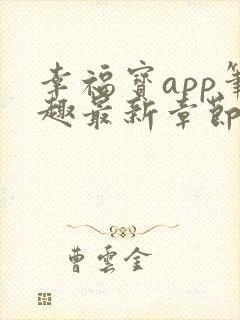 幸福寳app筆
趣最新章節
曹雲金